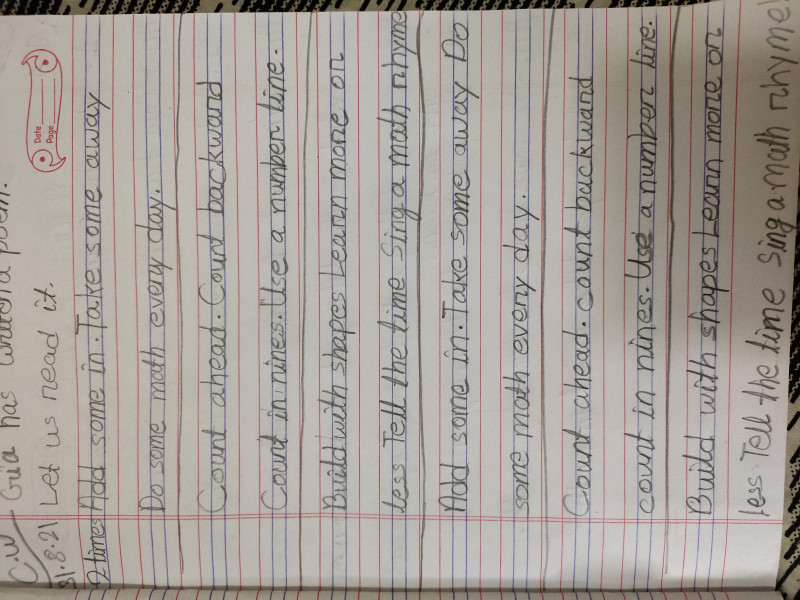 C.W Gua has written a poem.
31.8.21 Let us read it.
Date
Page
2 times Add some in. Take some away
Do some math every day.
Count ahead. Count backward
Count in nines. Use a number line.
Build with shapes Learn more on
less Tell the time Sing a math rhyme
Add some in. Take some away Do
some math every day.
Count ahead. count backward
count in nines. Use a number line.
Build with shapes Learn more on
less. Tell the time Sing a math rhyme!